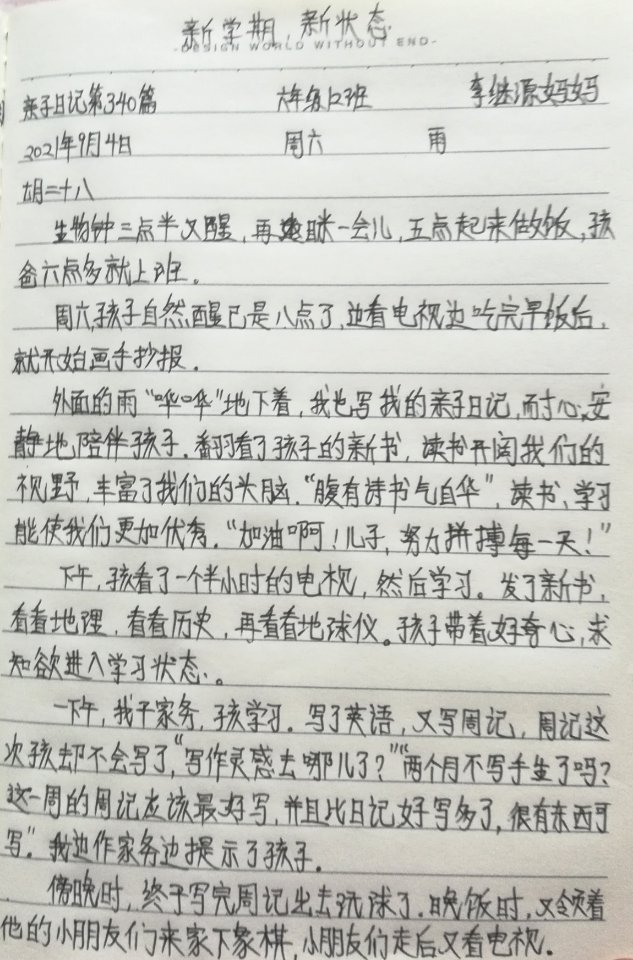 新学期，新状态
-DESIGN WORLD WITHOUT END-
亲子日记第340篇 六年级12班 李继源妈妈
2021年9月4日 周六 雨
胡二十八
生物钟三点半又醒，再眯一会儿，五点起来做饭，孩
爸六点多就上班。
周六，孩子自然醒已是八点了，边看电视边吃完早饭后，
就开始画手抄报。
外面的雨“哗哗”地下着，我也写我的亲子日记，耐心、安
静地陪伴孩子。翻看了孩子的新书，读书开阔我们的
视野，丰富了我们的头脑。“腹有诗书气自华”，读书、学习
能使我们更加优秀。“加油啊！儿子，努力拼搏每一天！”
下午，孩看了一个半小时的电视，然后学习。发了新书，
看看地理，看看历史，再看看地球仪。孩子带着好奇心，求
知欲进入学习状态。
一下午，我干家务，孩学习。写了英语，又写周记，周记这
次孩却不会写了，“写作灵感去哪儿了？”“两个月不写手生了吗？
这一周的周记应该最好写，并且比日记好写多了，很有东西可
写”。我边作家务边提示了孩子。
傍晚时，终于写完周记出去玩球了。晚饭时，又领着
他的小朋友们来家下象棋，小朋友们走后又看电视。